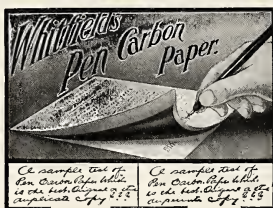 Whitfield's
Pen Carbon
Paper.
A sample test of
Pen Carbon Paper which
is the best. Original a
duplicate Copy
A sample test of
Pen Carbon Paper which
is the best. Original a
duplicate Copy